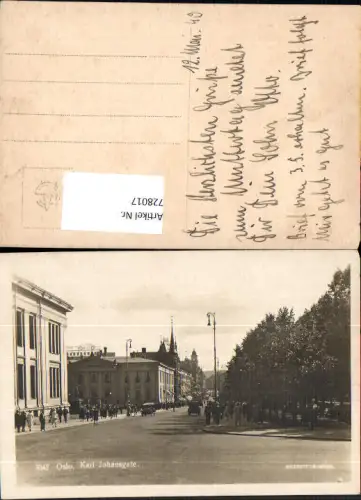 12. Mai. 40
Die herzlichsten Grüße
zum Muttertag sendet
Dir Dein Sohn
Brief vom 3.5. erhalten. Brief folgt
Mir geht es gut
Artikel Nr.
728017
Oslo. Karl Johansgate.